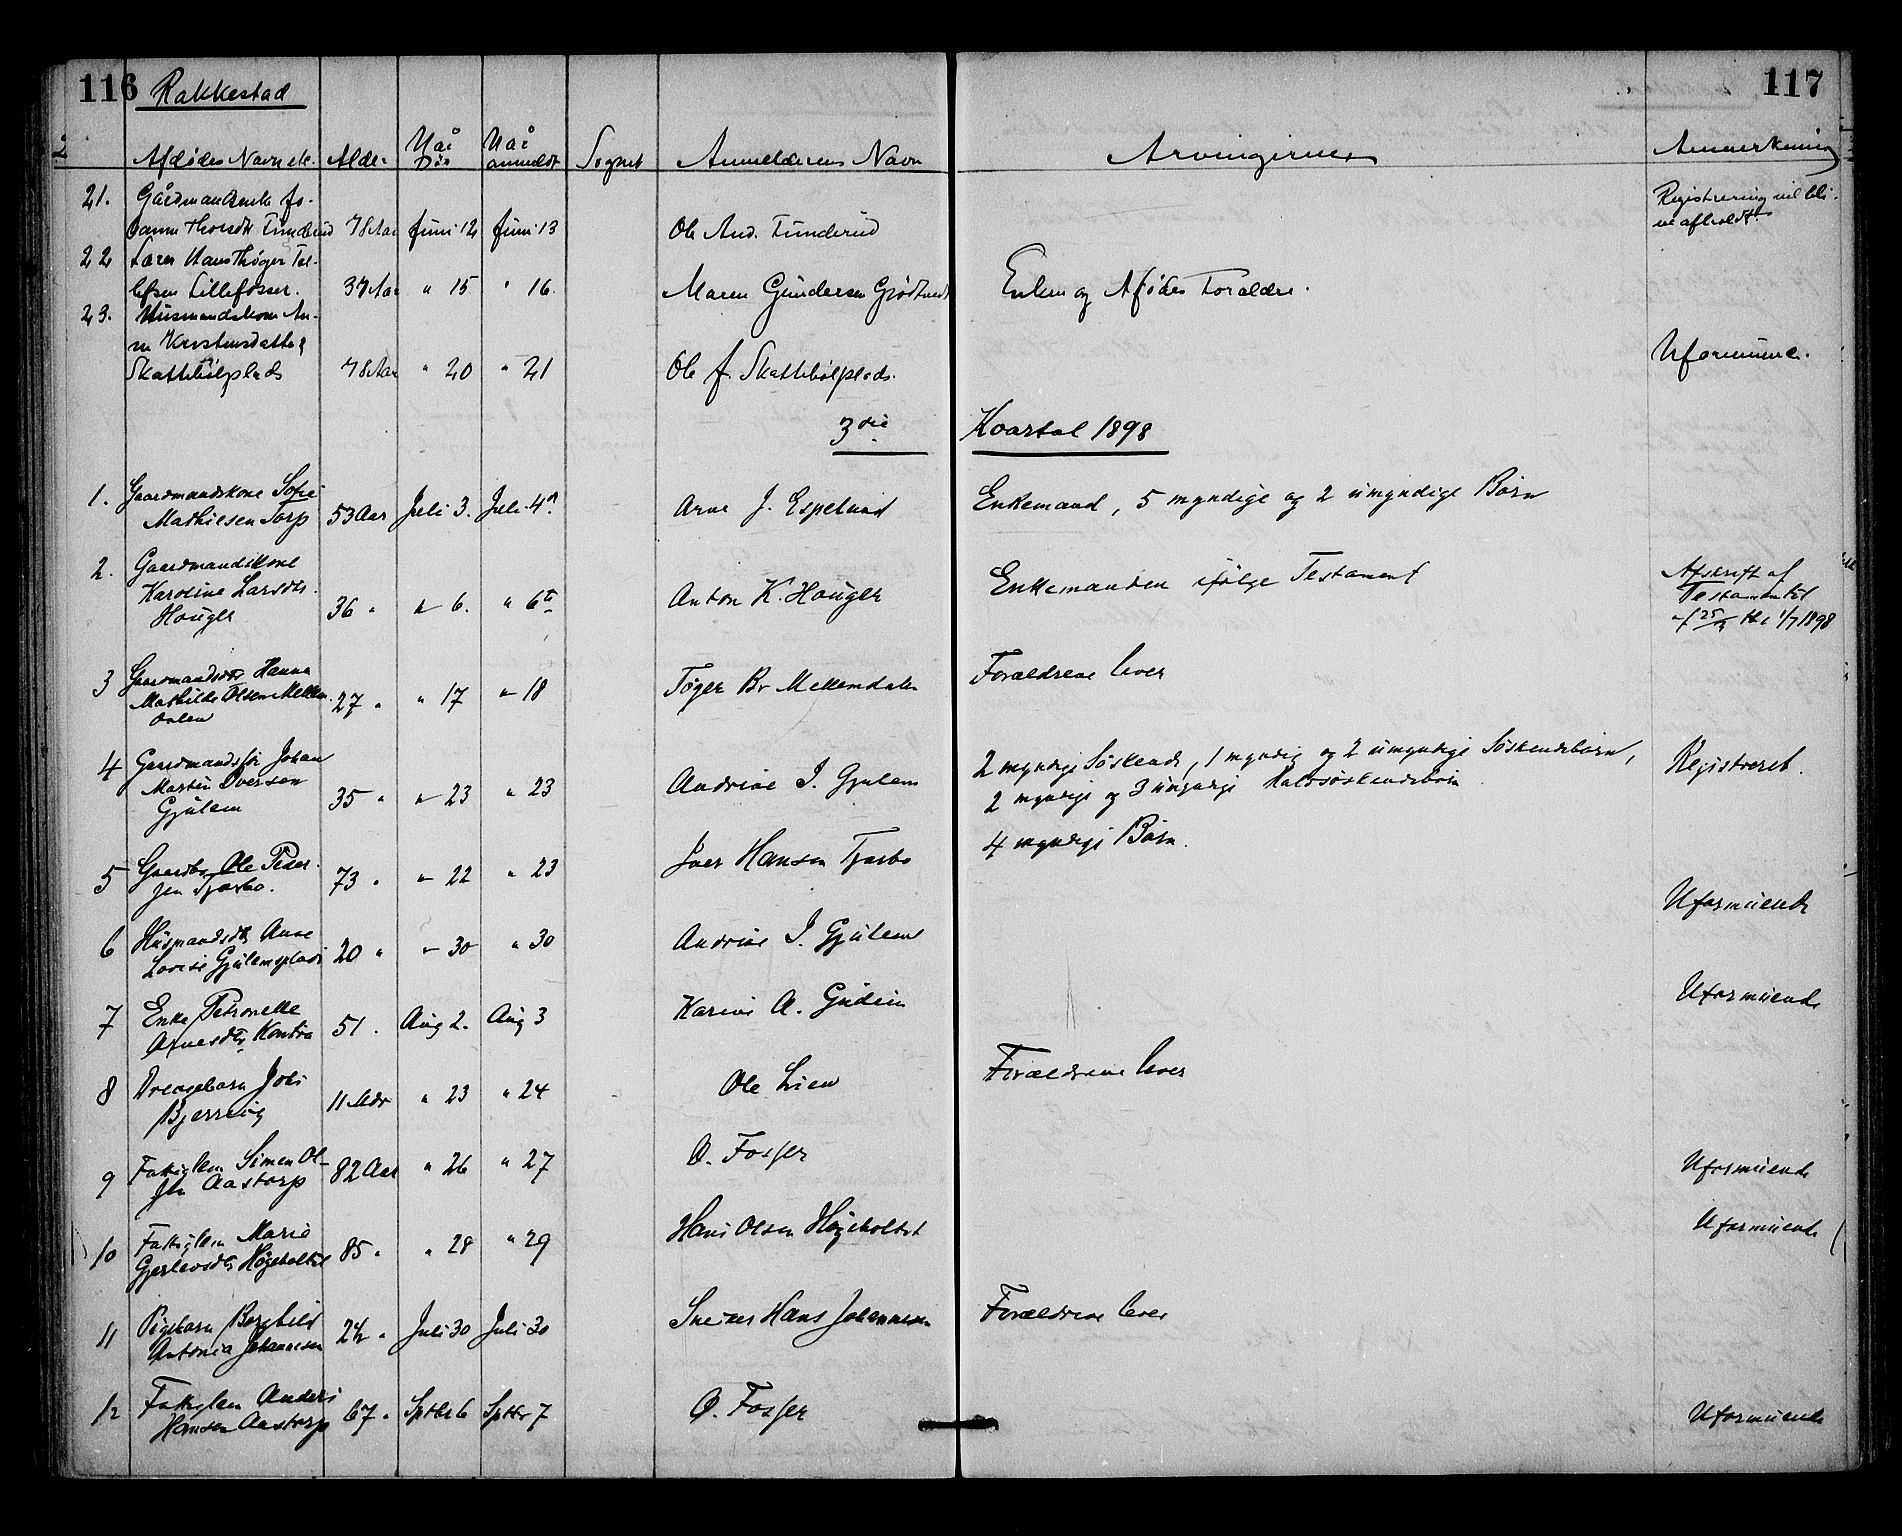 116 Rakkestad 117
Afdødes Navn etc. Alder Naar Død Naar anmeldt Sognet Anmelderens Navn Arvingerne Anmerkning
21. Gårdmandsenke Jo-
hanne Thorsdtr Finderud 78 Aar Juni 12 Juni 13 Ole And. Finderud Registrering vil bli-
ve afholdt.
22 Lærer Hans Thøger Tel-
lefsen Lillefosser. 37 Aar " 15 " 16. Maren Gundersen Enken og Afdødes Foraldre.
23. Husmandskone An-
ne Kristensdatter
Skattebølplads 78 Aar " 20 " 21 Ole J. Skattebølplads. Uformuende.
3die Kvartal 1898
1. Gaardmandskone Sofie
Mathiesen Torp 53 Aar Juli 3. Juli 4 Arne J. Espelund Enkemand, 5 myndige og 2 umyndige Børn
2. Gaardmandskone
Karoline Larsdtr.
Houger 36 " " 6. " 6 Anton K. Houger Enkemanden ifølge Testament Afskrift af
Testament
1/7 1898
3 Gaardmandsdtr Hanna
Mathilde Olsen Mellem-
dalen 27 " " 17 " 18 Tøger Br Mellemdalen Forældrene lever
4 Gaardmandsfør Johan
Martin Iversen
Gjulem 35 " " 23 " 23 Andrine I. Gjulem 2 myndige Søskende, 1 myndig og 2 umyndige Søskendebørn,
2 myndige og 3 umyndige Halvsøskendebørn Registreret.
5 Gaardbr. Ole Peder-
sen Tjærbo. 73 " " 22 " 23 Iver Hansen Tjærbo 4 myndige Børn.
6 Husmandsdtr Anne
Lovise Gjulemsplads 20 " " 30 " 30 Andrine I. Gjulem Uformuende
7 Enke Petronelle
Arnesdtr Kontra 51. Aug 2. Aug 3 Karine A. Gudim Uformuende
8 Drengebarn Joli
Bjerreng 11 Mdr " 23 " 24 Ole Lien Forældrene lever
9 Fattiglem Simen Ol-
sen Aastorp 82 Aar " 26 " 27 O. Fosser Uformuende
10 Fattiglem Marie
Gjerlovsdtr Høgeholtet 85 " " 28 " 29 Hans Olsen Høgeholtet Uformuende
11 Pigebarn Borghild
Antonia Johannesen 24 " Juli 30 Juli 30 Sneker Hans Johannesen Forældrene lever
12 Fattiglem Anders
Hansen Aastorp 67 " Sptbr 6 Sptbr 7 O. Fosser Uformuende